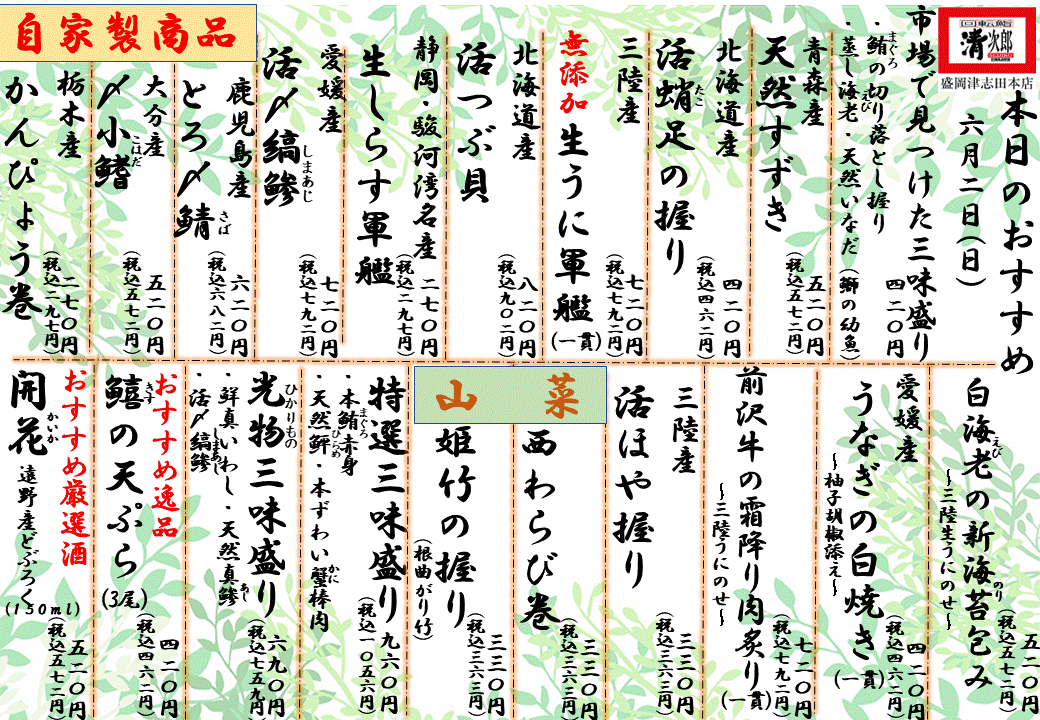 回転鮨
清次郎
盛岡津志田本店
本日のおすすめ
六月二日(日)
市場で見つけた三味盛り
四二〇円
・鮪の切り落とし握り
まぐろ
・蒸し海老・天然いなだ(鰤の幼魚)
えび
青森産
天然すずき
五二〇円
(税込五七二円)
北海道産
活蛸足の握り
たこ
四二〇円
(税込四六二円)
三陸産
無添加
生うに軍艦
(一貫)
七二〇円
(税込七九二円)
北海道産
活つぶ貝
八二〇円
(税込九〇二円)
静岡・駿河湾名産
生しらす軍艦
二七〇円
(税込二九七円)
愛媛産
活〆縞鯵
しまあじ
七二〇円
(税込七九二円)
鹿児島産
とろ〆鯖
さば
六二〇円
(税込六八二円)
自家製商品
大分産
〆小鰭
こはだ
五二〇円
(税込五七二円)
栃木産
かんぴょう巻
二七〇円
(税込二九七円)
白海老の新海苔包み
えび
のり
~三陸生うにのせ~
五二〇円
(税込五七二円)
愛媛産
うなぎの白焼き
(一貫)
~柚子胡椒添え~
四二〇円
(税込四六二円)
前沢牛の霜降り肉炙り
(一貫)
~三陸うにのせ~
七二〇円
(税込七九二円)
三陸産
活ほや握り
三三〇円
(税込三六三円)
山菜
西わらび巻
三三〇円
(税込三六三円)
姫竹の握り
(根曲がり竹)
三三〇円
(税込三六三円)
特選三味盛り
九六〇円
(税込一〇五六円)
・本鮪赤身
まぐろ
・天然鮃・本ずわい蟹棒肉
ひらめ
かに
光物三味盛り
ひかりもの
六九〇円
(税込七五九円)
・鮮真いわし・天然真鯵
あじ
・活〆縞鯵
しまあじ
おすすめ逸品
鱚の天ぷら
きす
(3尾)
四二〇円
(税込四六二円)
おすすめ厳選酒
開花
かいか
遠野産どぶろく
(150ml)
五二〇円
(税込五七二円)